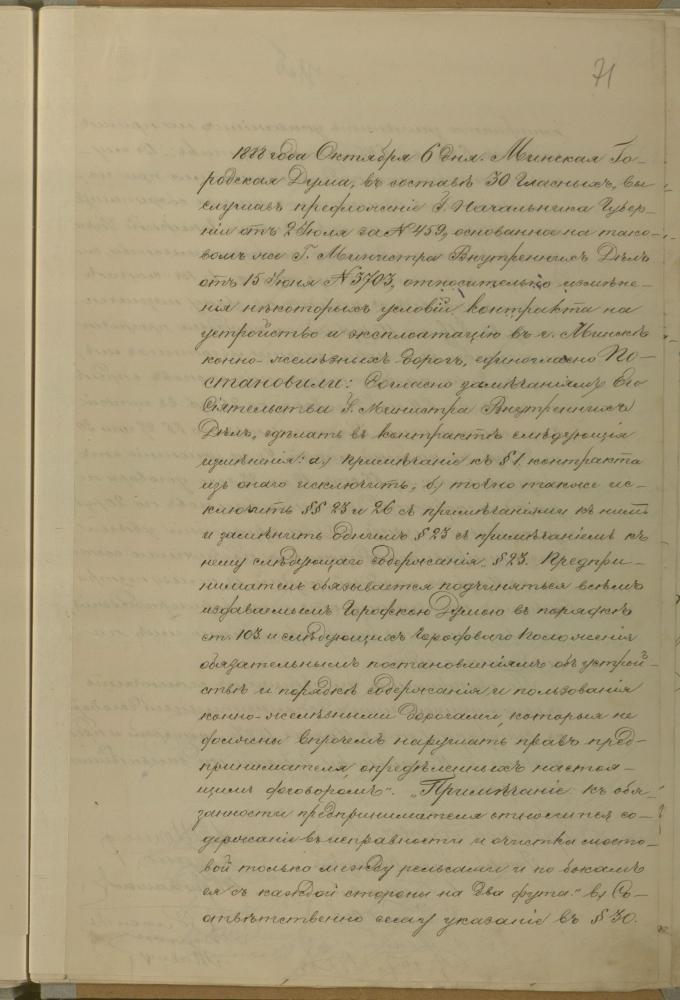 71
1888 года Октября 6 дня. Минская Го-
родская Дума, въ составѣ 30 Гласныхъ, вы-
слушавъ предложеніе Г. Начальника Губер-
ніи отъ 2 Іюля за № 459, основанна на тако-
вомъ же Г. Министра Внутреннихъ Дѣлъ
отъ 15 Іюня № 3703, относительно измѣне-
нія нѣкоторыхъ условій контракта на
устройство и эксплоатацію въ г. Минскѣ
конно-желѣзныхъ дорогъ, единогласно По-
становили: Согласно замѣчаніямъ Его
Сіятельства Г. Министра Внутреннихъ
Дѣлъ, сдѣлать въ контрактѣ слѣдующія
измѣненія: а) примѣчаніе къ § 1 контракта
изъ онаго исключить; б) точно также ис-
ключить §§ 23 и 26 съ примѣчаніями къ нимъ
и замѣнить однимъ § 23 съ примѣчаніемъ къ
нему слѣдующаго содержанія, § 23. Предпри-
ниматель обязывается подчиняться всѣмъ
издаваемымъ Городскою Думою въ порядкѣ
ст. 103 и слѣдующихъ Городоваго Положенія
обязательнымъ постановленіямъ объ устрой-
ствѣ и порядкѣ содержанія и пользованія
конно-желѣзными дорогами, которыя не
должны впрочемъ нарушать правъ пред-
принимателя, опредѣленныхъ настоя-
щимъ договоромъ". „Примѣчаніе къ обя-
занности предпринимателя относится со-
держаніе въ исправности и очистка мосто-
вой только между рельсами и по бокамъ
ея съ каждой стороны на два фута." в) Со-
отвѣтственно сему указаніе въ § 30.